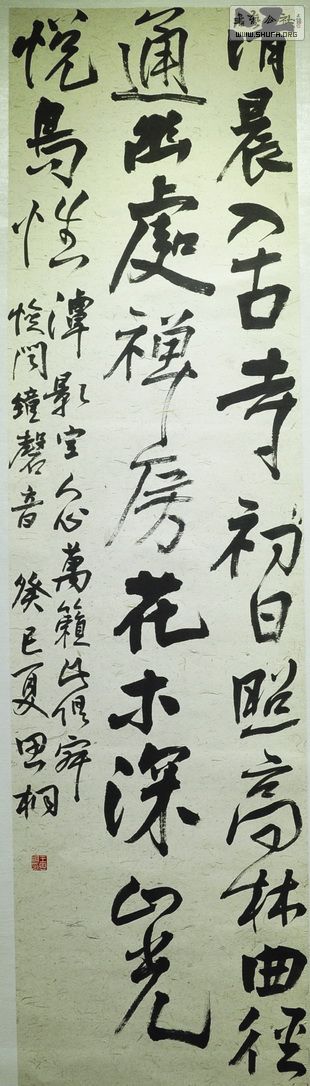 清晨入古寺初日照高林曲径
通幽處禅房花木深山光
悦鳥性
潭影空人心萬籟此俱寂
惟闻鐘磬音 癸巳夏思桐
WWW.SHUFA.ORG